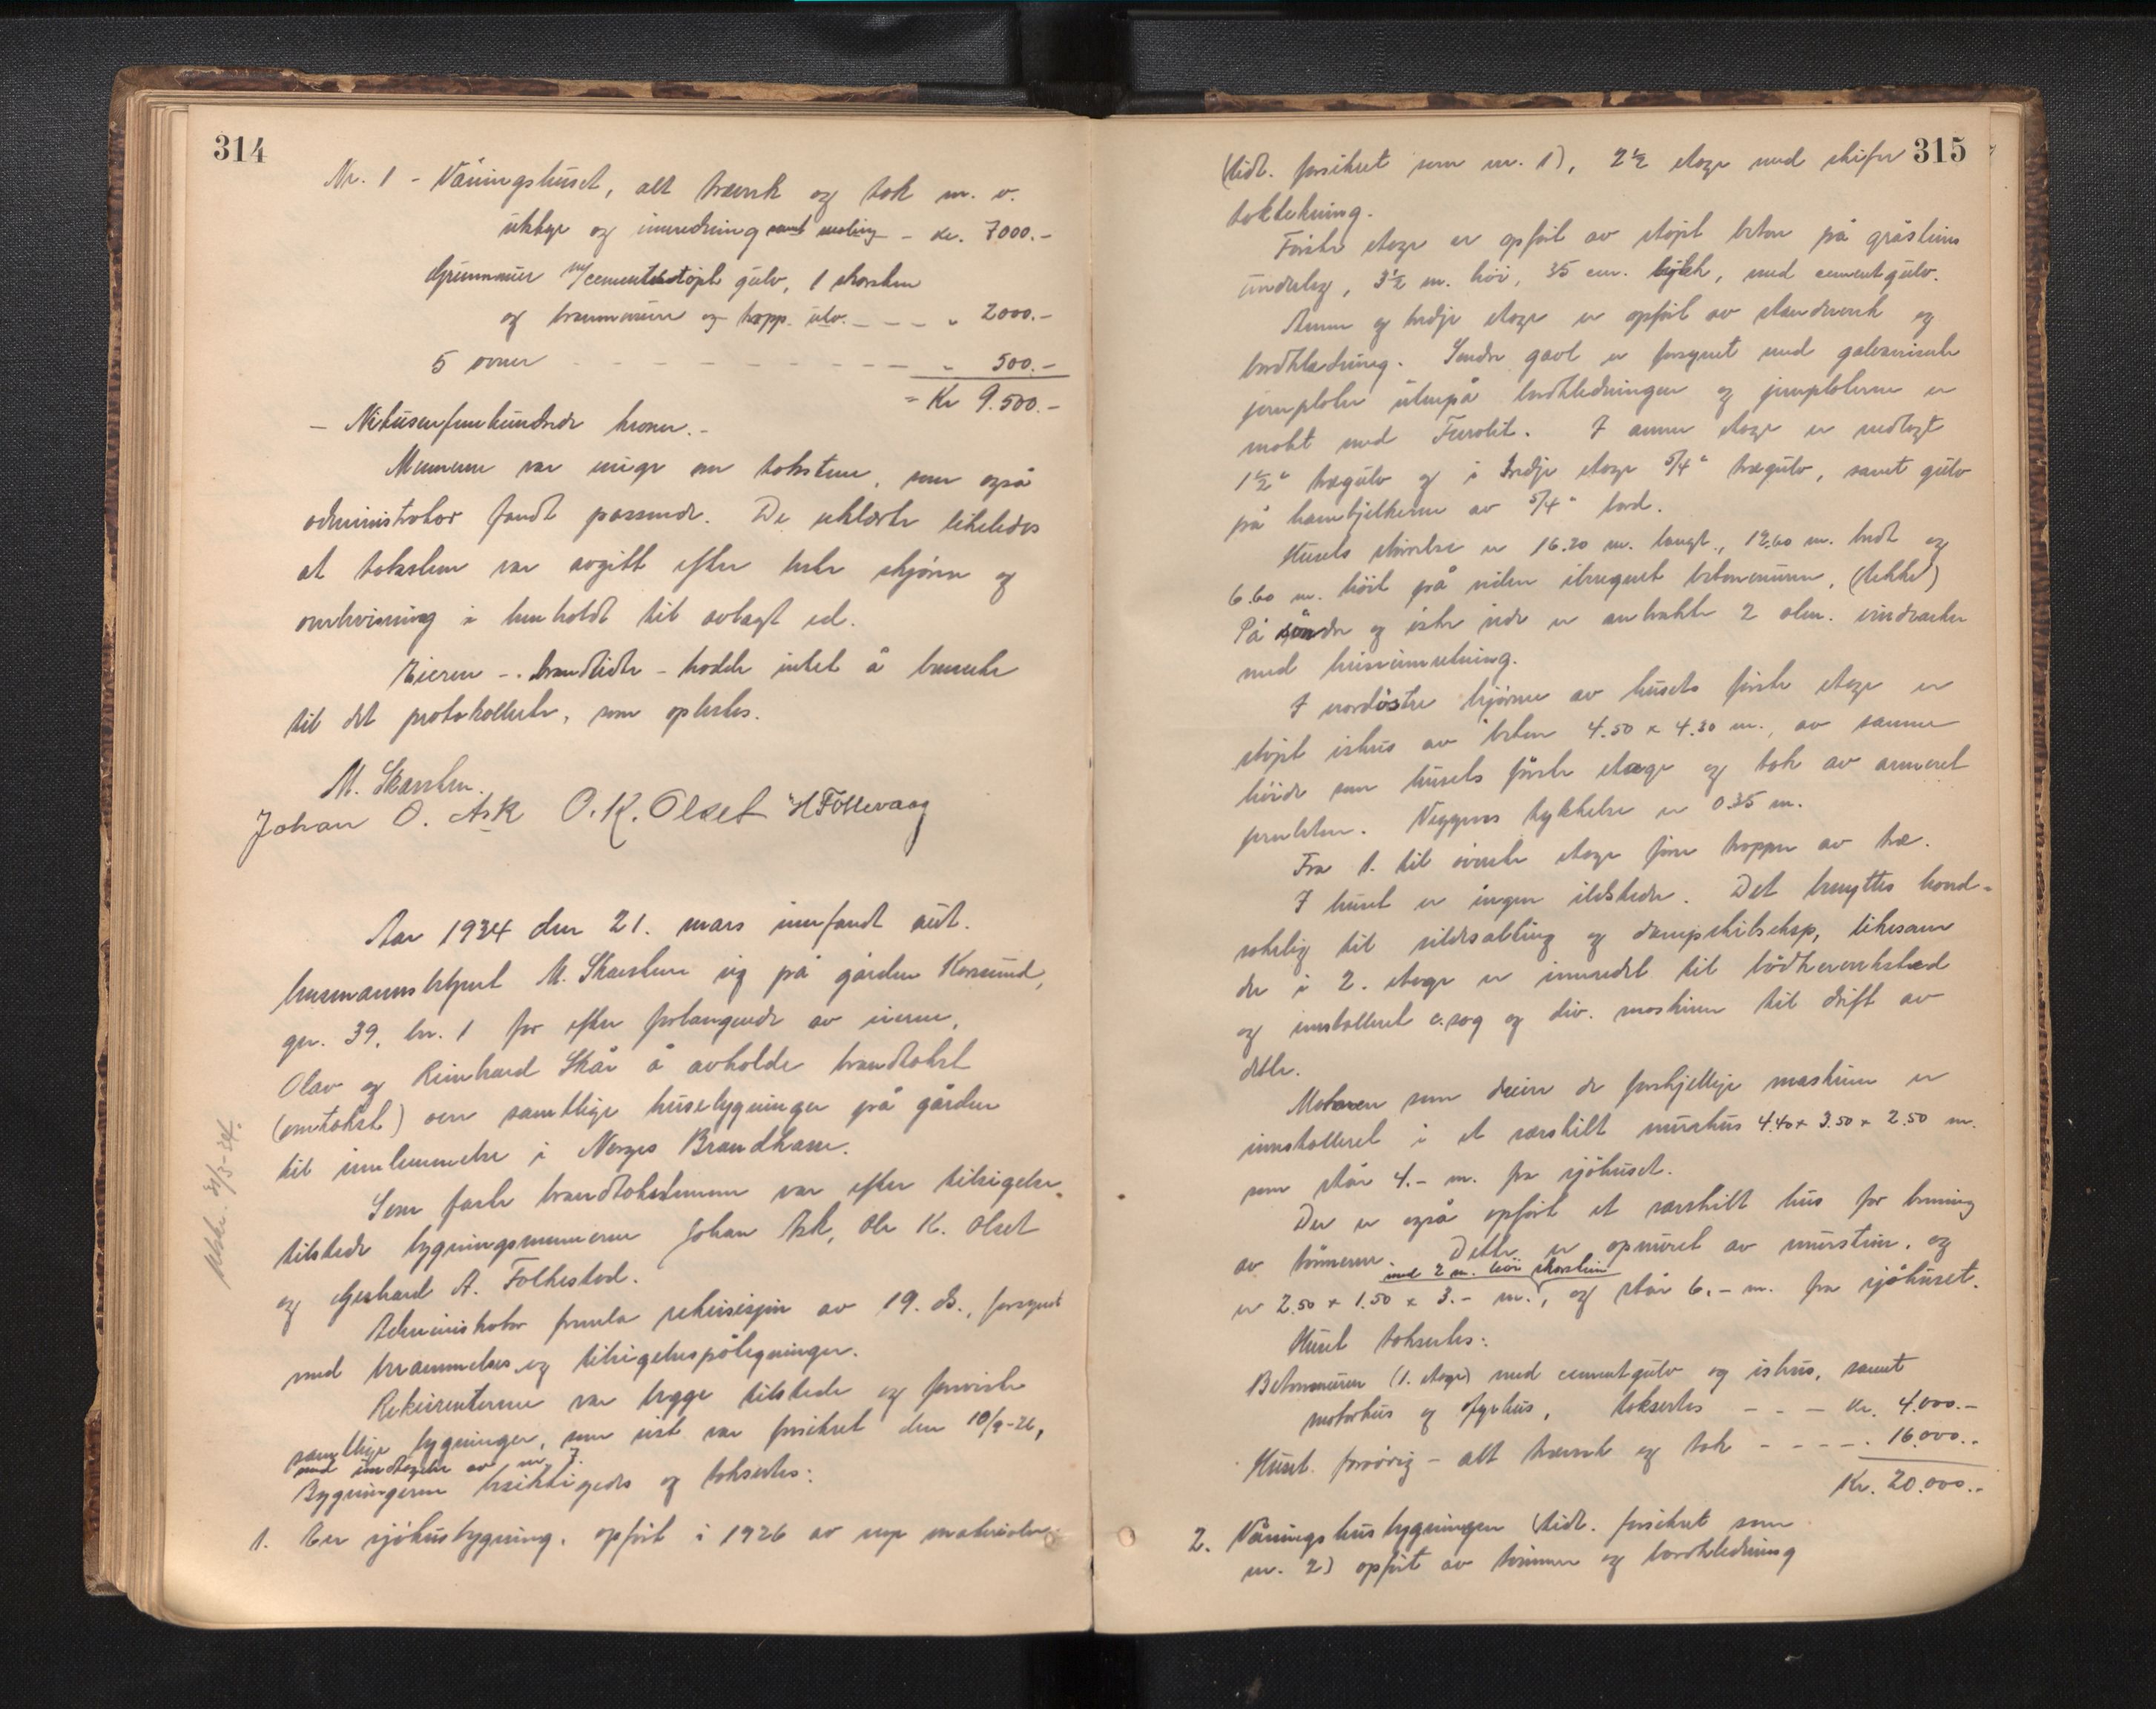 314
Nr. 1 - Våningshuset, alt træverk og tak m. v.
utstyr og innredning samt maling - kr. 7000.-
Grunnmur m/cementstøpt gulv, 1 skorsten
og brannmurer og trapp. utv. - - - " 2000.-
5 ovner - - - - - - - - - " 500.-
= Kr 9.500.-
- Nitusenfemhundrede kroner.-
Mennene var enige om taksten, som også
administrator fandt passende. De erklærte likeledes
at taksten var avgitt efter beste skjønn og
overbevisning i henhold til avlagt ed.
Eieren - brandlidte - hadde intet å bemerke
til det protokollerte, som oplestes.
M. Skarsten.
Johan O. Ask O. K. Olset H Follevaag
Aar 1934 den 21. mars innfandt aut.
lensmannsbetjent M. Skarsten sig på gården Korssund,
gn. 39, bn. 1 for efter forlangende av eierne,
Olav og Reinhard Skår å avholde brandtakst
(omtakst) over samtlige husebygninger på gården
til innlemmelse i Norges Brandkasse.
Som faste brandtakstmenn var efter tilsigelse
tilstede bygningsmennene Johan Ask, Ole K. Olset
og Gerhard A. Folkestad.
Administrator fremla rekvisisjon av 19. ds., forsynt
med berammelses og tilsigelsespåtegninger.
Rekvirenterne var begge tilstede og foreviste
samtlige bygninger, som sist var forsikret den 10/9-26,
med undtagelse av nr. 7.
Bygningerne besiktigedes og takseres:
1. Een sjøhusbygning, opført i 1926 av nye materialer
Utskr. 31/3-34.
315
(tidl. forsikret som nr. 1), 2½ etage med skifer
taktekning.
Første etage er opført av støpt beton på gråsteins
underlag, 3½ m. høi, 35 cm. tykk, med cementgulv.
Annen og tredje etage er opført av standverk og
bordklædning. Søndre gavl er forsynet med galvaniserte
jernplater utenpå bordkledningen og jernplaterne er
malt med Ferrolit. I annen etage er nedlagt
1½" trægulv og i tredje etage 5/4" trægulv, samt gulv
på hanebjelkerne av 5/4" bord.
Husets størrelse er 16.20 m. langt, 12.60 m. bredt og
6.60 m. høit på siden iberegnet betonmuren, (rekke)
På søndre og østre side er anbrakte 2 alm. vindearker
med heiseinnretning.
I nordøstre hjørne av husets første etage er
støpt ishus av beton 4.50 x 4.30 m., av samme
høide som husets første etage og tak av armeret
jernbeton. Veggenes tykkelse er 0.35 m.
Fra 1. til øverste etage fører trapper av træ.
I huset er ingen ildsteder. Det benyttes hoved-
sakelig til sildesalting og dampskibseksp, likesom
der i 2. etage er innredet til bødkerverksted
og innstalleret c. sag og div. maskiner til drift av
dette.
Motoren som driver de forskjellige maskiner er
innstalleret i et særskilt murhus 4.40 x 3.50 x 2.50 m.
som står 4.- m. fra sjøhuset.
Der er også opført et særskilt hus for brenning
av tønnerne. Dette er opmuret av murstein, og
med 2 m. høi skorstein
er 2.50 x 1.50 x 3.- m., og står 6.- m. fra sjøhuset.
Huset takseres:
Betonmuren (1. etage) med cementgulv og ishus, samt
motorhus og fyrhus, takseres - - - kr. 4.000.-
Huset forøvrig - alt træverk og tak - - - - 16.000.-
Kr. 20.000.-
2. Våningshusbygningen (tidl. forsikret som
nr. 2) opført av tømmer og bordkledning